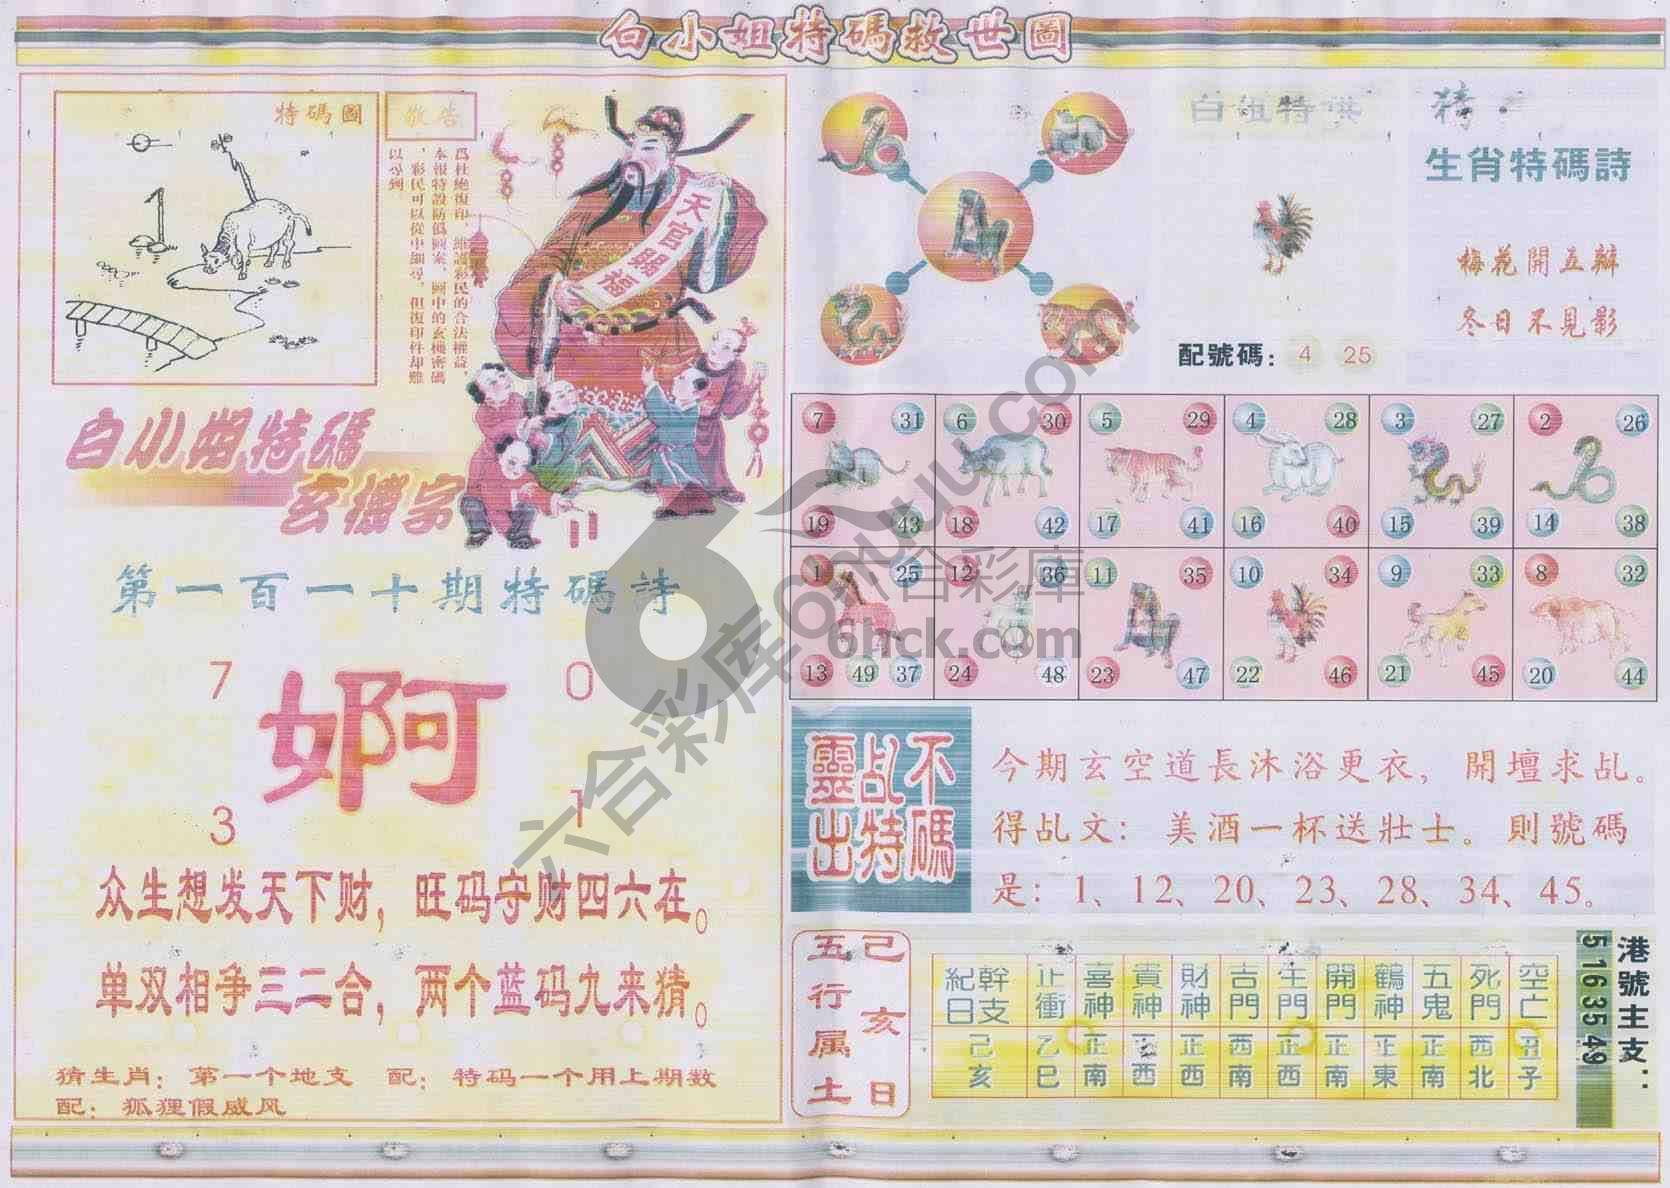 白小姐特碼救世圖
特碼圖
敬告
爲杜絶復印，維護彩民的合法權益，
本報特設防僞圖案，圖中的玄機密碼
，彩民可以從中細尋，但復印件却難
以尋到。
天官賜福
白小姐特碼
玄機字
第一百一十期特碼詩
7 0
婀
3 1
众生想发天下财，旺码守财四六在。
单双相争三二合，两个蓝码九来猜。
猜生肖：第一个地支 配：特码一个用上期数
配：狐狸假威风
白姐特供
配號碼：4 25
猜
生肖特碼詩
梅花開五瓣
冬日不見影
7 31 6 30 5 29 4 28 3 27 2 26
19 43 18 42 17 41 16 40 15 39 14 38
1 25 12 36 11 35 10 34 9 33 8 32
13 49 37 24 48 23 47 22 46 21 45 20 44
不碼
乩特
靈出
今期玄空道長沐浴更衣，開壇求乩。
得乩文：美酒一杯送壯士。則號碼
是：1、12、20、23、28、34、45。
己亥日
五行属土
幹支紀日 正衝 喜神 貴神 財神 吉門 生門 開門 鶴神 五鬼 死門 空亡
己亥 乙巳 正南 正西 正西 西南 正西 正南 正東 正南 西北 丑子
港號主支：
5163549
六合彩库 6htuku.com
六合彩库
6hck.com